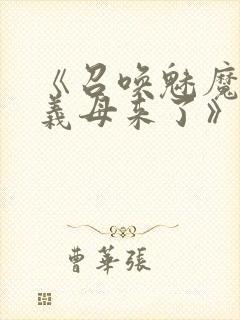 《召喚魅魔
義母来了》
曹華張